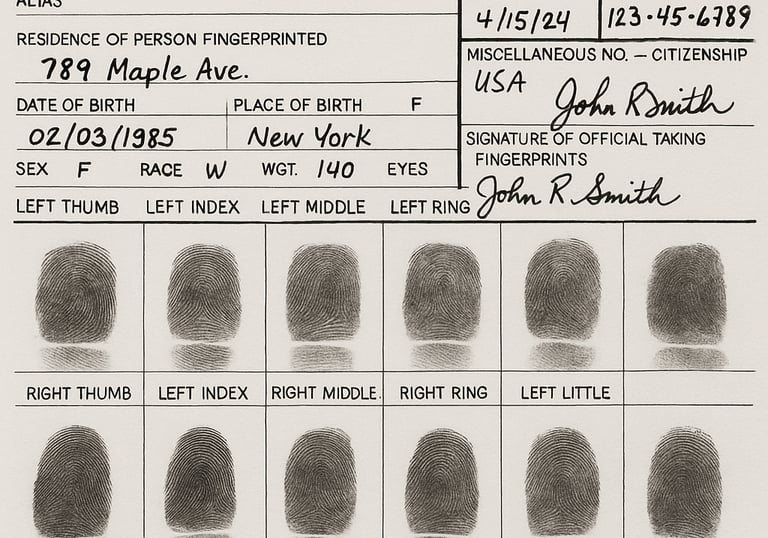 ALIAS
4/15/24 123-45-6789
RESIDENCE OF PERSON FINGERPRINTED
789 Maple Ave.
MISCELLANEOUS NO. — CITIZENSHIP
USA John R Smith
DATE OF BIRTH PLACE OF BIRTH F
02/03/1985 New York
SIGNATURE OF OFFICIAL TAKING
FINGERPRINTS
SEX F RACE W WGT. 140 EYES
John R Smith
LEFT THUMB LEFT INDEX LEFT MIDDLE LEFT RING
RIGHT THUMB LEFT INDEX RIGHT MIDDLE. RIGHT RING LEFT LITTLE